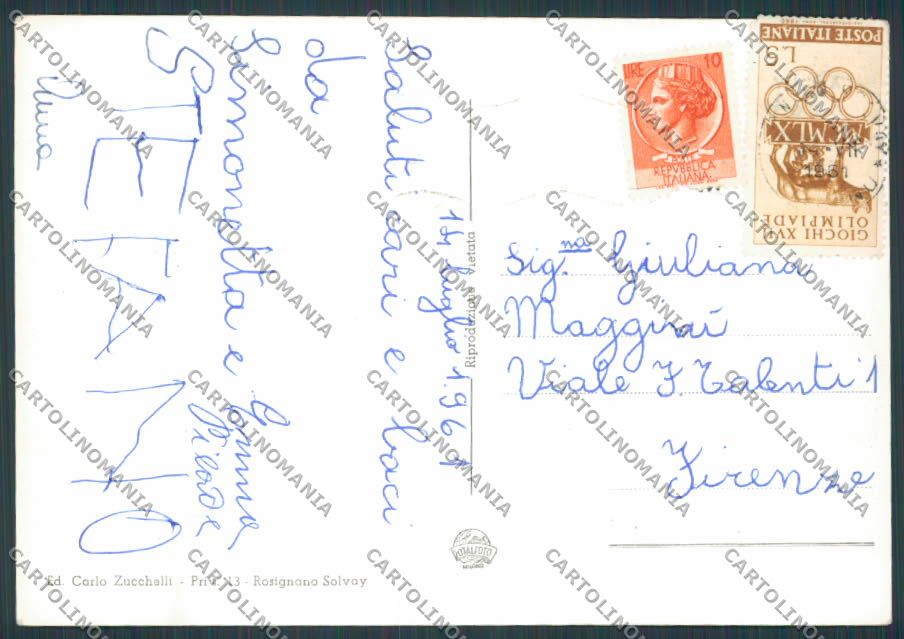 14 luglio 1961
Saluti cari e baci
da
Simonetta e
Gemma
STEFANO
Anna
Riproduzione vietata
LIRE 10
REPVBBLICA
ITALIANA
POSTE ITALIANE
L.5
MCMLX
GIOCHI XVII
OLIMPIADE
1961
Sig.na Giuliana
Maggini
Viale F. Talenti 1
Firenze
Ed. Carlo Zucchelli - Priv. 13 - Rosignano Solvay
CARTOLINOMANIA